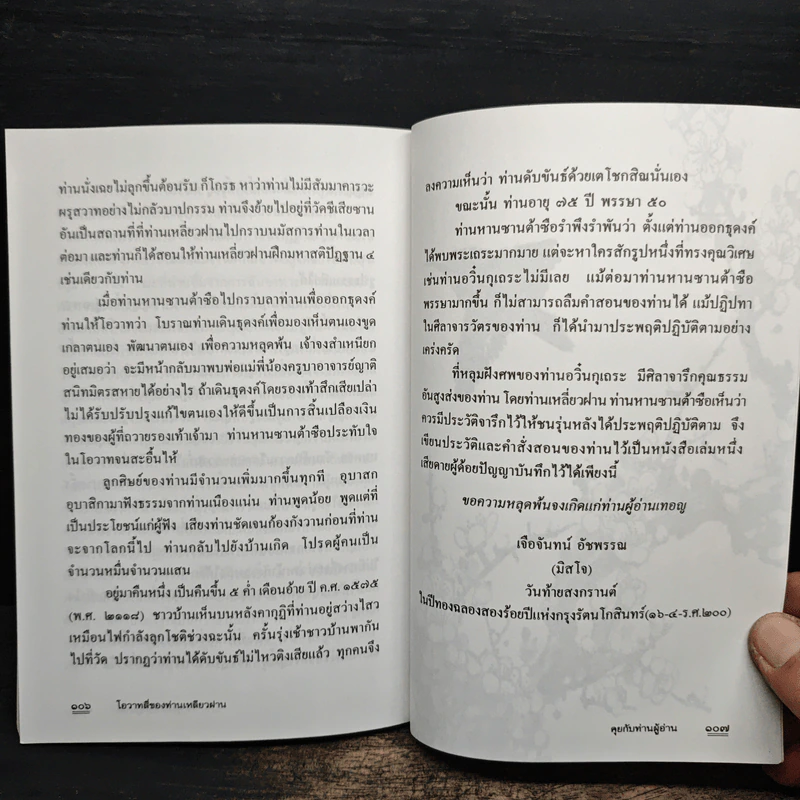 ท่านนั่งเฉยไม่ลุกขึ้นต้อนรับ ก็โกรธ หาว่าท่านไม่มีสัมมาคารวะ
ผรุสวาทอย่างไม่กลัวบาปกรรม ท่านจึงย้ายไปอยู่ที่วัดชีเสียซาน
อันเป็นสถานที่ที่ท่านเหลี่ยวฝานไปกราบนมัสการท่านในเวลา
ต่อมา และท่านก็ได้สอนให้ท่านเหลี่ยวฝานฝึกมหาสติปัฏฐาน ๔
เช่นเดียวกับท่าน
เมื่อท่านหานซานต้าซือไปกราบลาท่านเพื่อออกธุดงค์
ท่านให้โอวาทว่า โบราณท่านเดินธุดงค์เพื่อมองเห็นตนเองขูด
เกลาตนเอง พัฒนาตนเอง เพื่อความหลุดพ้น เจ้าจงสำเหนียก
อยู่เสมอว่า จะมีหน้ากลับมาพบพ่อแม่พี่น้องครูบาอาจารย์ญาติ
สนิทมิตรสหายได้อย่างไร ถ้าเดินธุดงค์โดยรองเท้าสึกเสียเปล่า
ไม่ได้รับปรับปรุงแก้ไขตนเองให้ดีขึ้นเป็นการสิ้นเปลืองเงิน
ทองของผู้ที่ถวายรองเท้าเจ้ามา ท่านหานซานต้าซือประทับใจ
ในโอวาทจนสะอื้นไห้
ลูกศิษย์ของท่านมีจำนวนเพิ่มมากขึ้นทุกที อุบาสก
อุบาสิกามาฟังธรรมจากท่านเนืองแน่น ท่านพูดน้อย พูดแต่ที่
เป็นประโยชน์แก่ผู้ฟัง เสียงท่านชัดเจนก้องกังวานก่อนที่ท่าน
จะจากโลกนี้ไป ท่านกลับไปยังบ้านเกิด โปรดผู้คนเป็น
จำนวนหมื่นจำนวนแสน
อยู่มาคืนหนึ่ง เป็นคืนขึ้น ๕ ค่ำ เดือนอ้าย ปี ค.ศ. ๑๕๗๕
(พ.ศ. ๒๑๑๘) ชาวบ้านเห็นบนหลังคากุฏิที่ท่านอยู่สว่างไสว
เหมือนไฟกำลังลุกโชติช่วงฉะนั้น ครั้นรุ่งเช้าชาวบ้านพากัน
ไปที่วัด ปรากฏว่าท่านได้ดับขันธ์ไม่ไหวติงเสียแล้ว ทุกคนจึง
๑๐๖ โอวาทสี่ของท่านเหลี่ยวฝาน
ลงความเห็นว่า ท่านดับขันธ์ด้วยเตโชกสิณนั่นเอง
ขณะนั้น ท่านอายุ ๗๕ ปี พรรษา ๕๐
ท่านหานซานต้าซือรำพึงรำพันว่า ตั้งแต่ท่านออกธุดงค์
ได้พบพระเถระมากมาย แต่จะหาใครสักรูปหนึ่งที่ทรงคุณวิเศษ
เช่นท่านอวิ๋นกุเถระไม่มีเลย แม้ต่อมาท่านหานซานต้าซือ
พรรษามากขึ้น ก็ไม่สามารถลืมคำสอนของท่านได้ แม้ปฏิปทา
ในศีลาจารวัตรของท่าน ก็ได้นำมาประพฤติปฏิบัติตามอย่าง
เคร่งครัด
ที่หลุมฝังศพของท่านอวิ๋นกุเถระ มีศิลาจารึกคุณธรรม
อันสูงส่งของท่าน โดยท่านเหลี่ยวฝาน ท่านหานซานต้าซือเห็นว่า
ควรมีประวัติจารึกไว้ให้ชนรุ่นหลังได้ประพฤติปฏิบัติตาม จึง
เขียนประวัติและคำสั่งสอนของท่านไว้เป็นหนังสือเล่มหนึ่ง
เสียดายผู้ด้อยปัญญาบันทึกไว้ได้เพียงนี้
ขอความหลุดพ้นจงเกิดแก่ท่านผู้อ่านเทอญ
เจือจันทน์ อัชพรรณ
(มิสโจ)
วันท้ายสงกรานต์
ในปีทองฉลองสองร้อยปีแห่งกรุงรัตนโกสินทร์(๑๖-๔-ร.ศ.๒๐๐)
คุยกับท่านผู้อ่าน ๑๐๗